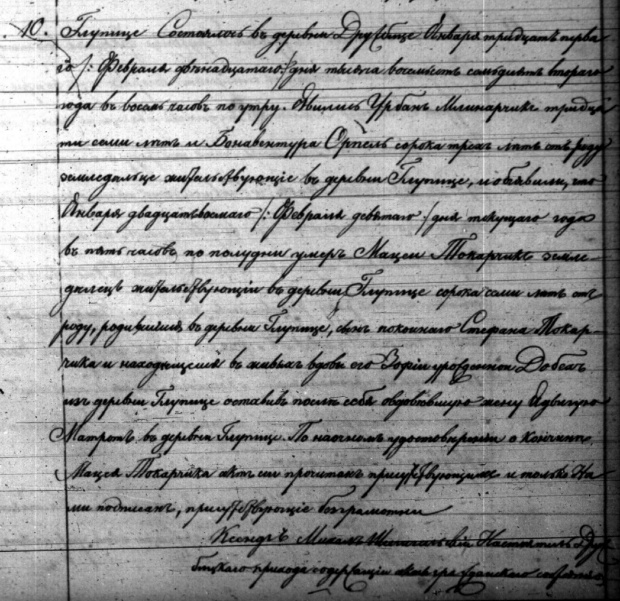 10. Глупице Состоялось въ деревни Друсбице Января тридцать перва-
го /: Февраля двѣнадцатаго :/ дня тысяча восемьсть семьдисять втораго
года въ восемь часовъ по утру. Явились Урбанъ Млинарчикъ тридца-
ти семи лѣтъ и Бонавентура Орпель сорока трехъ лѣтъ отъ роду
земледѣльце жительствующіе въ деревни Глупице, и объявили, что
Января двадцать восмаго /: Февраля девятаго :/ дня текущаго года
въ пять часовъ по полудни умеръ Мацей Токарчикъ земле-
дѣлецъ жительствующій въ деревни Глупице сорока семи лѣтъ отъ
роду, родившійся въ деревни Глупице, сынъ покойнаго Стефана Токар-
чика и находящейся въ живыхъ вдовы его Зофіи урожденной Добехъ
изъ деревни Глупице оставивъ послѣ себя овдовѣвшую жену Ядвигу
Матротъ въ деревни Глупице. По наочномъ удостовѣреніи о кончинѣ
Мацея Токарчика актъ сей прочитанъ присутствующимъ и только На-
ми подписанъ, присутствующіе безграметни
Ксендзъ Михалъ Настоятель Дру-
бицкаго прихода содержащій акты гражданскаго состоянія